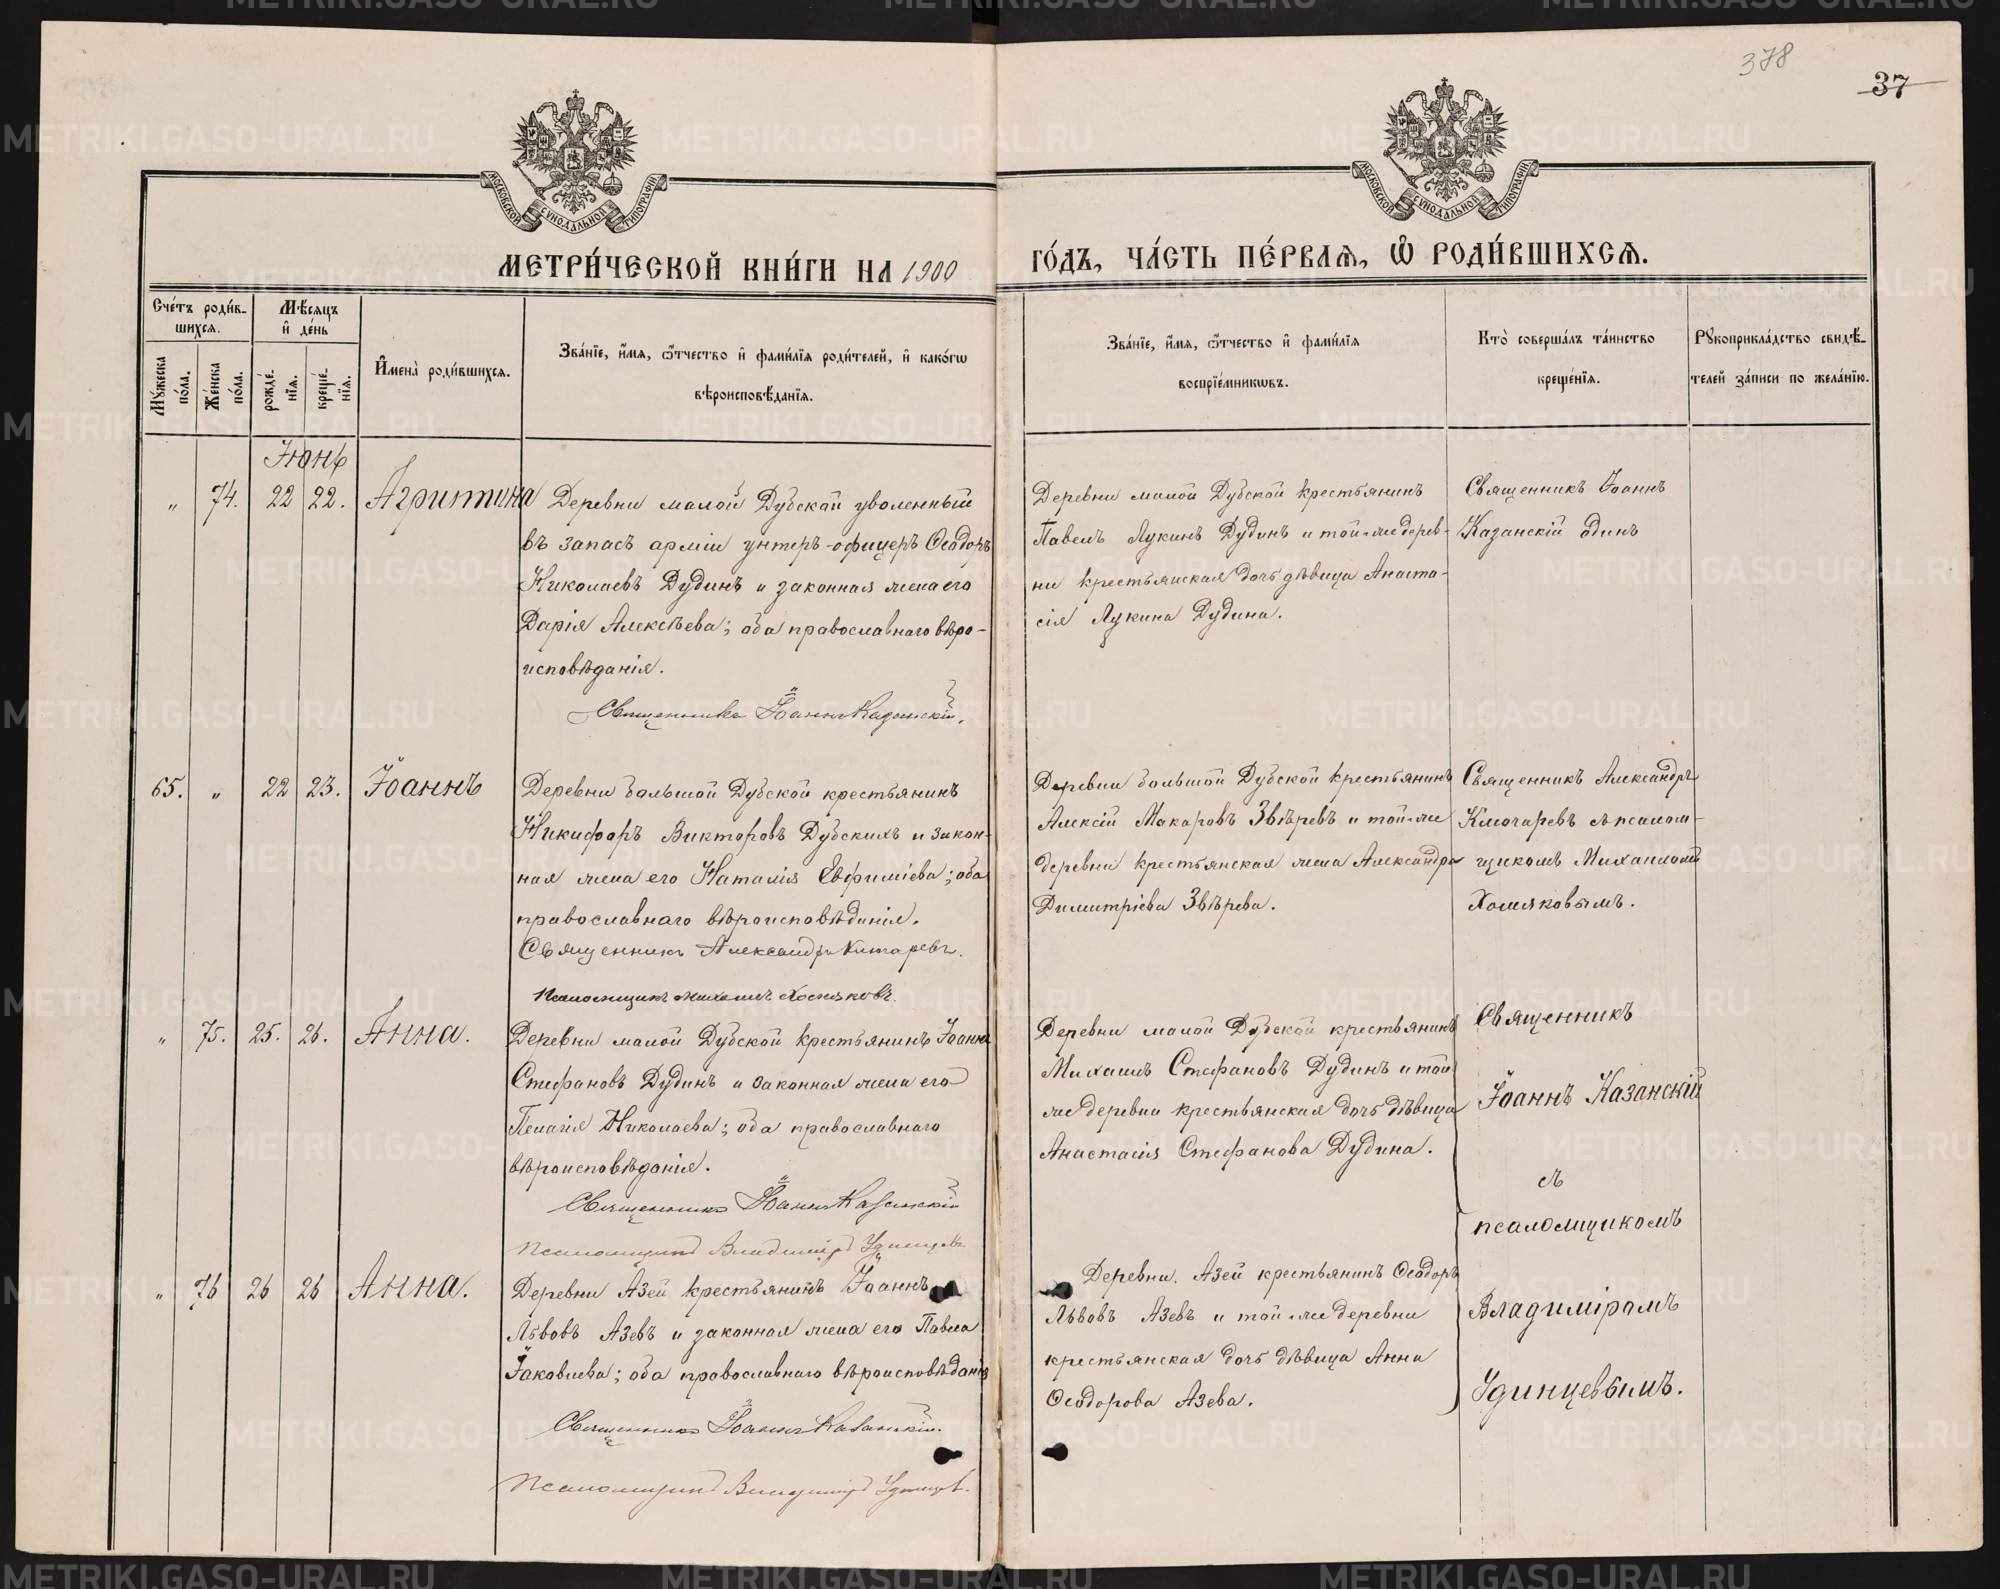 378
37
МОСКОВСКОЙ СѴНОДАЛЬНОЙ ТИПОГРАФІИ
МОСКОВСКОЙ СѴНОДАЛЬНОЙ ТИПОГРАФІИ
МЕТРИ́ЧЕСКОЙ КНИ́ГИ НА 1900
ГО́ДЪ, ЧА́СТЬ ПЕ́РВАѦ, Ѽ РОДИ́ВШИХСѦ.
Сче́тъ роди́в-
шихсѧ.
Мꙋ́жеска по́ла.
Же́нска по́ла.
Мѣ́сѧцъ
и҆ де́нь
рожде́-
нїѧ.
креще́-
нїѧ.
И҆мена̀ роди́вшихсѧ.
Зва́нїе, и҆́мѧ, ѻ҆́тчество и҆ фами́лїѧ роди́телей, и҆ како́гѡ
вѣроисповѣ́данїѧ.
Зва́нїе, и҆́мѧ, ѻ҆́тчество и҆ фами́лїѧ
воспрїе́мникѡвъ.
Кто̀ соверша́лъ та́инство
креще́нїѧ.
Рꙋкоприкла́дство свидѣ́-
телей за́писи по жела́нїю.
Іюнь
„ 74. 22 22. Агриппина
Деревни малой Дубской уволенный
въ запасъ арміи унтеръ-офицеръ Ѳеодоръ
Николаевъ Дудинъ и законная жена его
Дарія Алексѣева; оба православнаго вѣро-
исповѣданія.
Священникъ Іоаннъ Казанскій.
Деревни малой Дубской крестьянинъ
Павелъ Лукинъ Дудинъ и той-же дерев-
ни крестьянская дочь дѣвица Анаста-
сія Лукина Дудина.
Священникъ Іоаннъ
Казанскій одинъ
65. „ 22 23. Іоаннъ
Деревни большой Дубской крестьянинъ
Никифоръ Викторовъ Дубскихъ и закон-
ная жена его Наталія Евфиміева; оба
православнаго вѣроисповѣданія.
Священникъ Александръ Ключаревъ.
Псаломщикъ Михаилъ Хомяковъ.
Деревни большой Дубской крестьянинъ
Алексій Макаровъ Звѣревъ и той-же
деревни крестьянская жена Александра
Димитріева Звѣрева.
Священникъ Александръ
Ключаревъ съ псалом-
щикомъ Михаиломъ
Хомяковымъ.
„ 75. 25. 26. Анна.
Деревни малой Дубской крестьянинъ Іоаннъ
Стефановъ Дудинъ и законная жена его
Пелагія Николаева; оба православнаго
вѣроисповѣданія.
Священникъ Іоаннъ Казанскій
Псаломщикъ Владиміръ Удинцевъ
Деревни малой Дубской крестьянинъ
Михаилъ Стефановъ Дудинъ и той
же деревни крестьянская дочь дѣвица
Анастасія Стефанова Дудина.
Священникъ
Іоаннъ Казанскій
съ
псаломщикомъ
Владиміромъ
Удинцевымъ.
„ 76 26 26 Анна.
Деревни Азей крестьянинъ Іоаннъ
Львовъ Азевъ и законная жена его Павла
Іаковлева; оба православнаго вѣроисповѣданія
Священникъ Іоаннъ Казанскій.
Псаломщикъ Владиміръ Удинцевъ.
Деревни Азей крестьянинъ Ѳеодоръ
Львовъ Азевъ и той-же деревни
крестьянская дочь дѣвица Анна
Ѳеодорова Азева.
METRIKI.GASO-URAL.RU